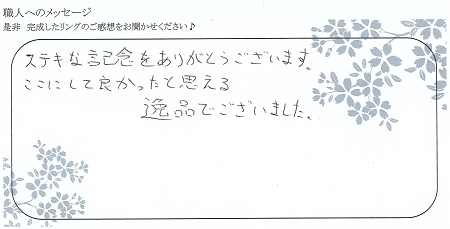 職人へのメッセージ
是非 完成したリングのご感想をお聞かせください♪
ステキな記念をありがとうございます。
ここにして良かったと思える
逸品でございました。